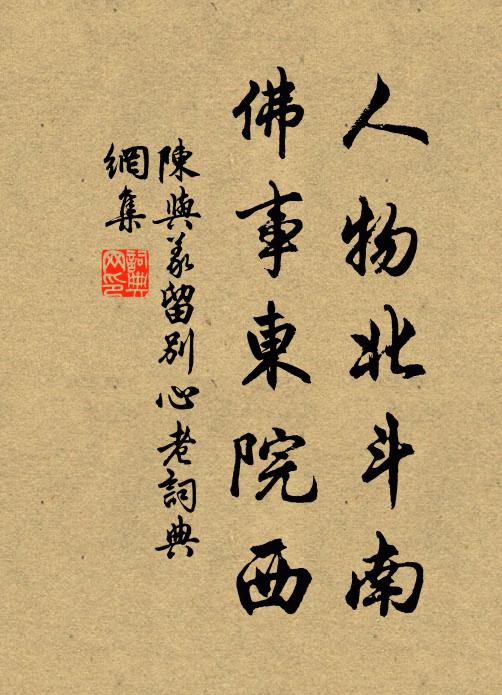 人物北斗南
佛事東院西
陳與義留別心老詞典
網集
詞典
网印